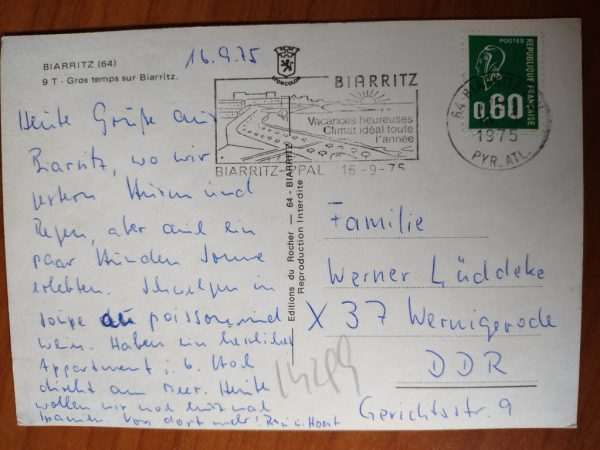 BIARRITZ (64)
9 T - Gros temps sur Biarritz.
16.9.75
Heute Grüße aus
Biarritz, wo wir
gestern Sturm und
Regen, aber auch ein
paar Stunden Sonne
erlebten. Schwelgen in
soupe au poisson, und
Wein. Haben ein herrliches
Appartment i. 6. Stock
direkt am Meer. Heute
wollen wir noch mal
Spanien. Von dort mehr!
u. Horst
BIARRITZ
Vacances heureuses
Climat idéal toute
l'année
BIARRITZ PPAL 16-9-75
64 B
1975
PYR. ATL.
POSTES
0,60
REPUBLIQUE FRANÇAISE
Editions du Rocher — 64 - BIARRITZ
Reproduction Interdite
Familie
Werner Lüddeke
X 37 Wernigerode
DDR
Gerichtsstr. 9